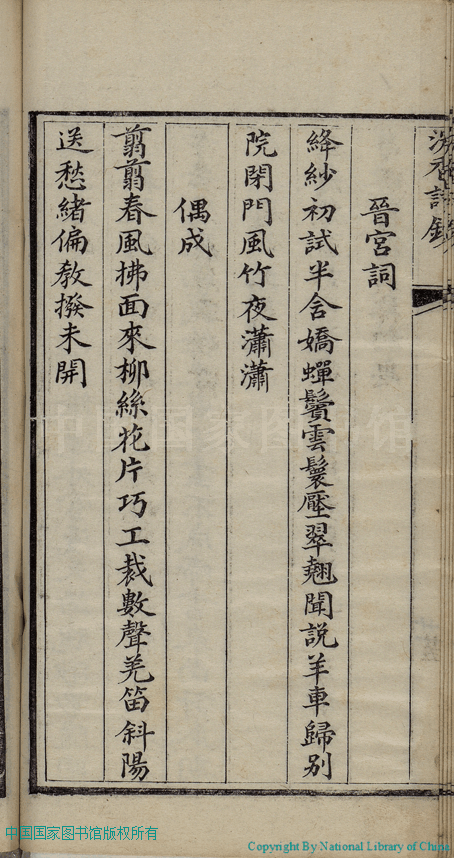 晉宮詞
絳紗初試半含嬌蟬鬢雲鬟壓翠翹聞説羊車歸别
院閉門風竹夜瀟瀟
偶成
翦翦春風拂面來柳絲花片巧工裁數聲羌笛斜陽
送愁緒偏教撥未開
中国国家图书馆
中国国家图书馆版权所有
Copyright By National Library of China